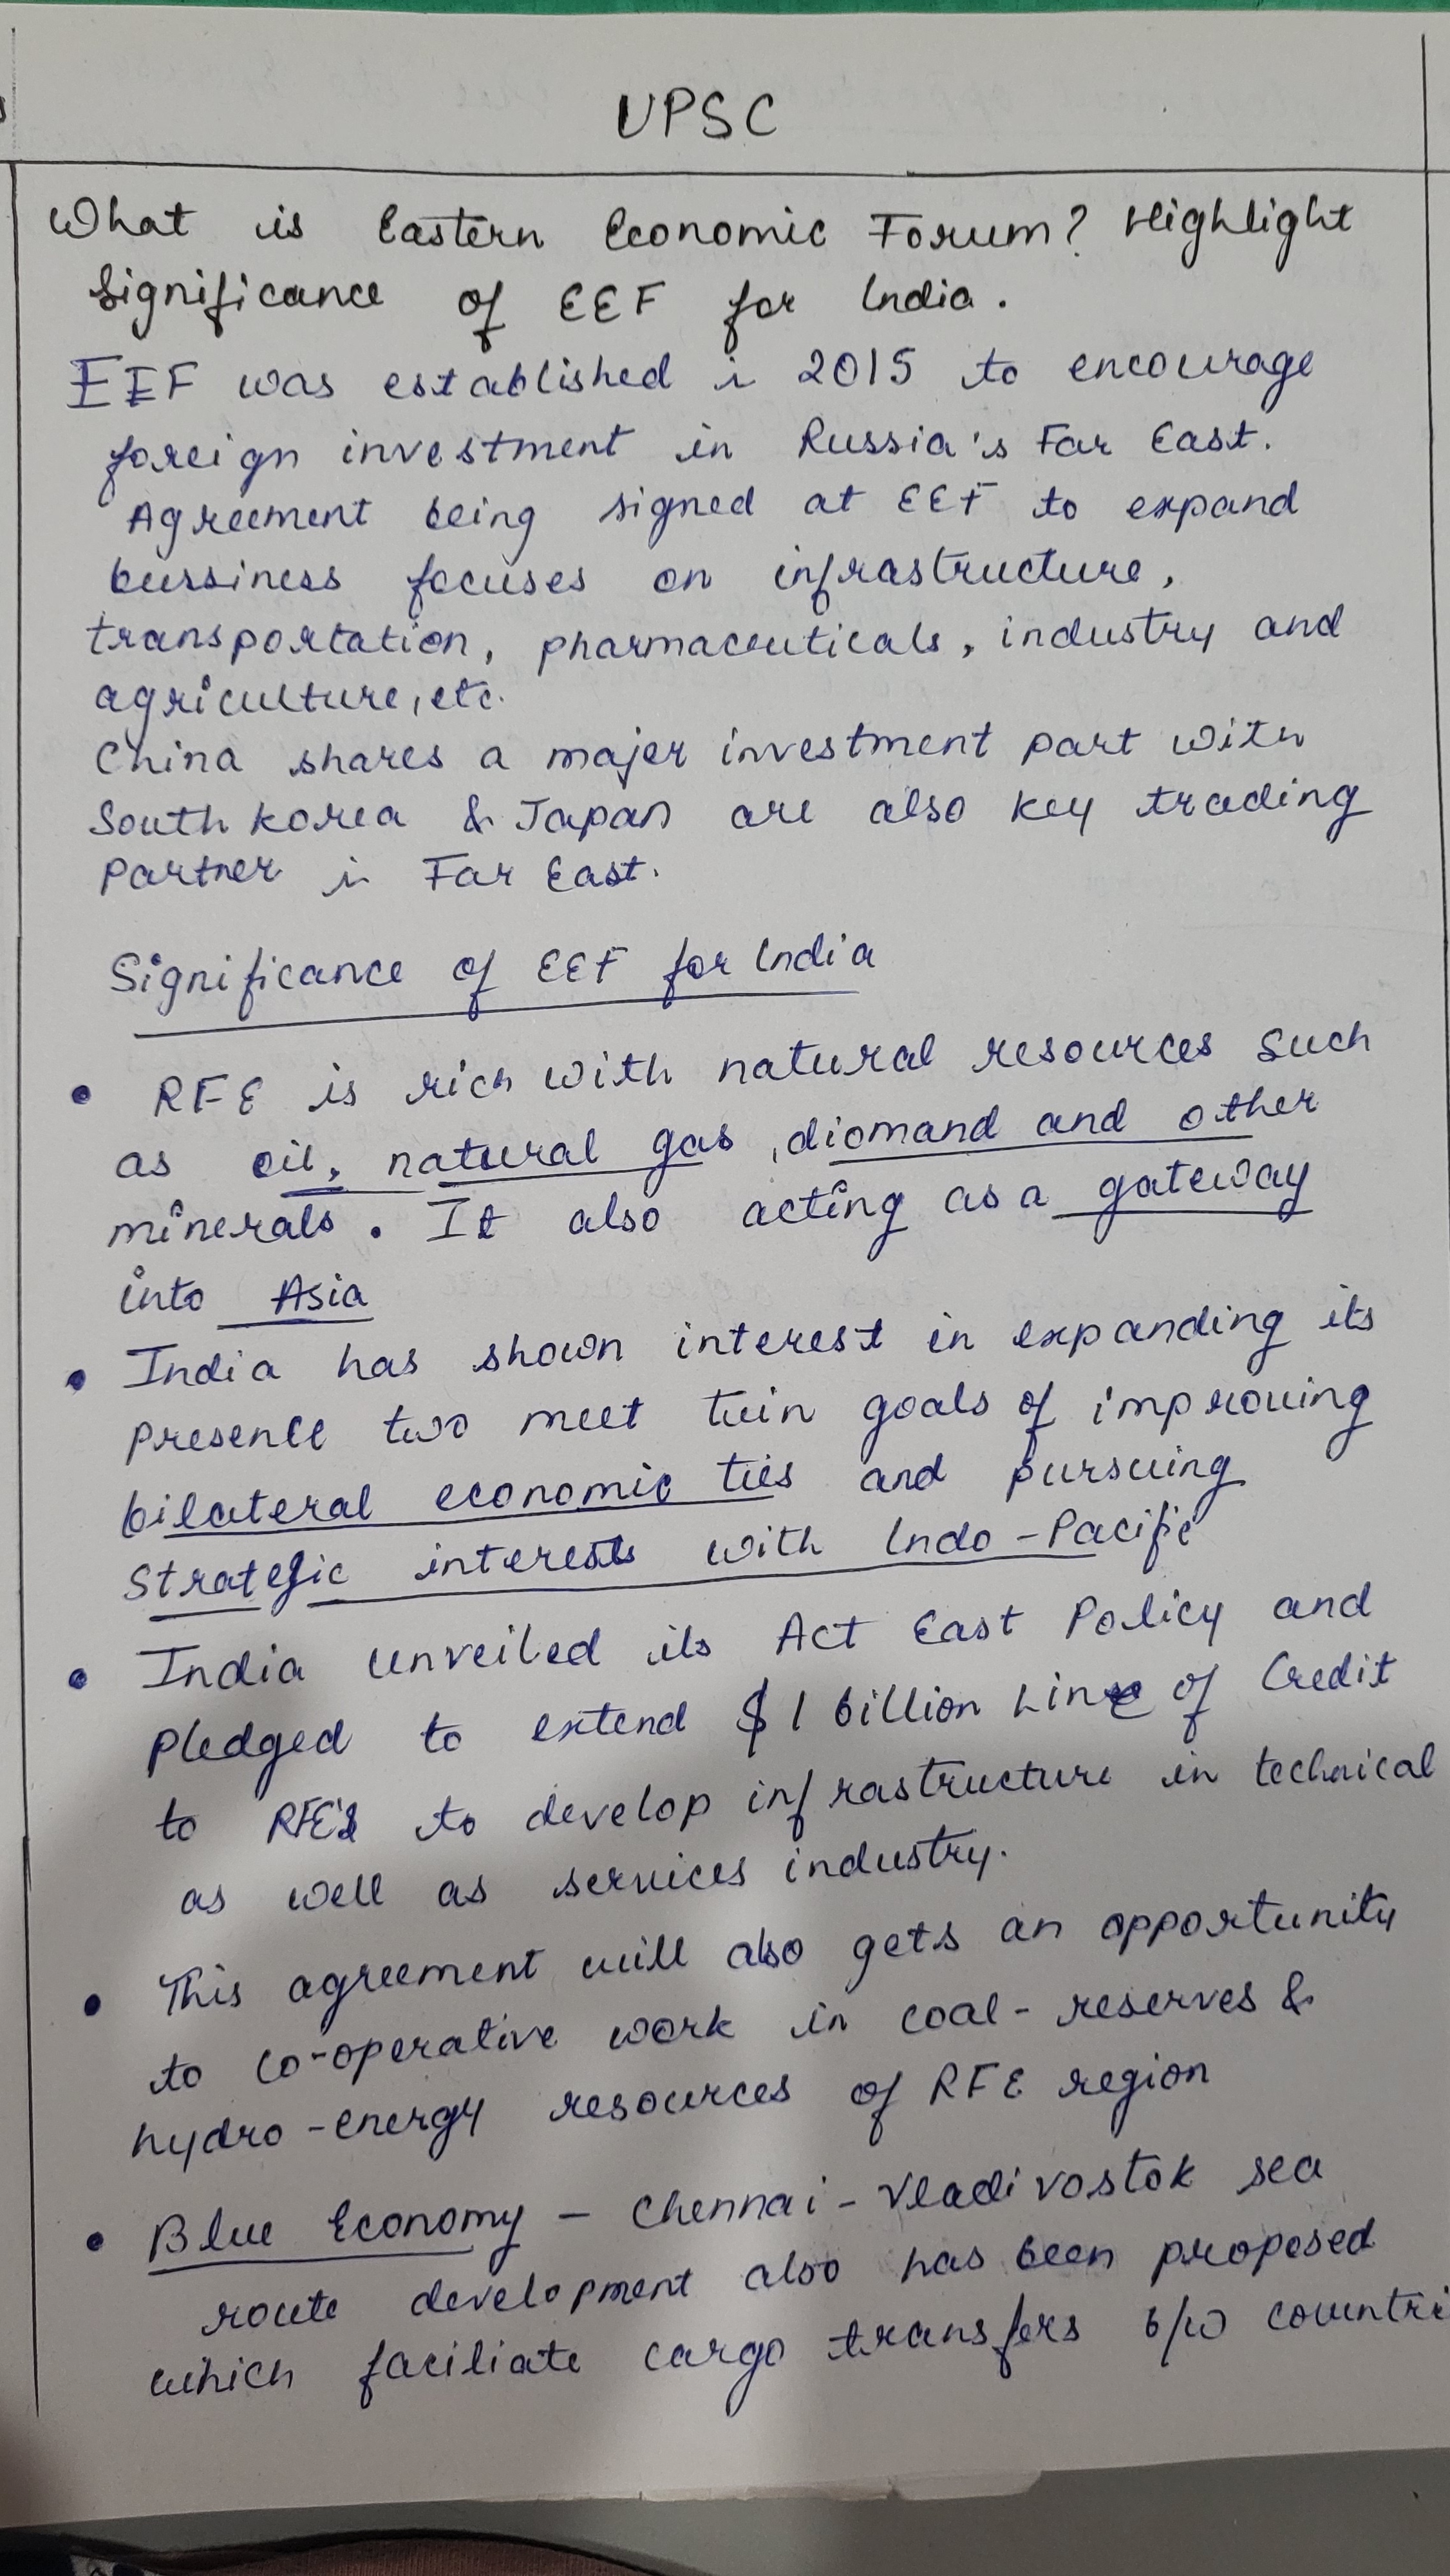 UPSC
What is Eastern Economic Forum? Highlight
Significance of EEF for India.
EEF was established in 2015 to encourage
foreign investment in Russia's Far East.
Agreement being signed at EEF to expand
bussiness focuses on infrastructure,
transportation, pharmaceuticals, industry and
agriculture, etc.
China shares a major investment part with
South korea & Japan are also key trading
Partner in Far East.
Significance of EEF for India
• RFE is rich with natural resources such
as oil, natural gas, diomand and other
minerals. It also acting as a gateway
into Asia
• India has shown interest in expanding its
presence two meet twin goals of improving
bilateral economic ties and pursuing
Strategic interests with Indo-Pacific
• India unveiled its Act East Policy and
pledged to extend $1 billion Line of Credit
to RFE's to develop infrastructure in technical
as well as services industry.
• This agreement will also gets an opportunity
to co-operative work in coal-reserves &
hydro-energy resources of RFE region
• Blue Economy - Chennai-Vladivostok sea
route development also has been proposed
which faciliate cargo transfers b/w countri